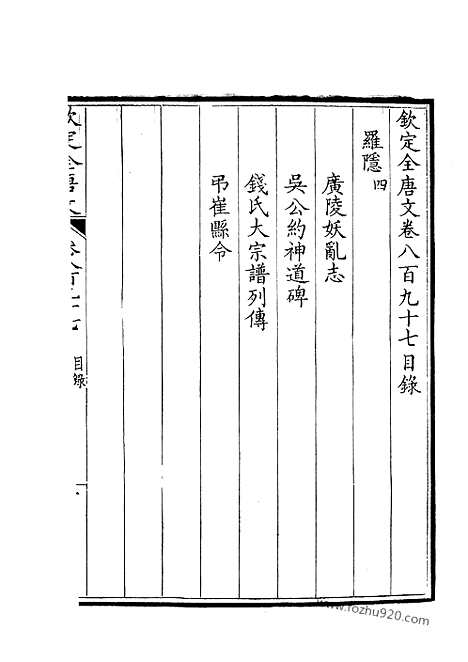 欽定全唐文卷八百九十七目錄
羅隱四
廣陵妖亂志
吳公約神道碑
錢氏大宗譜列傳
弔崔縣令
目錄
www.fozhu920.com